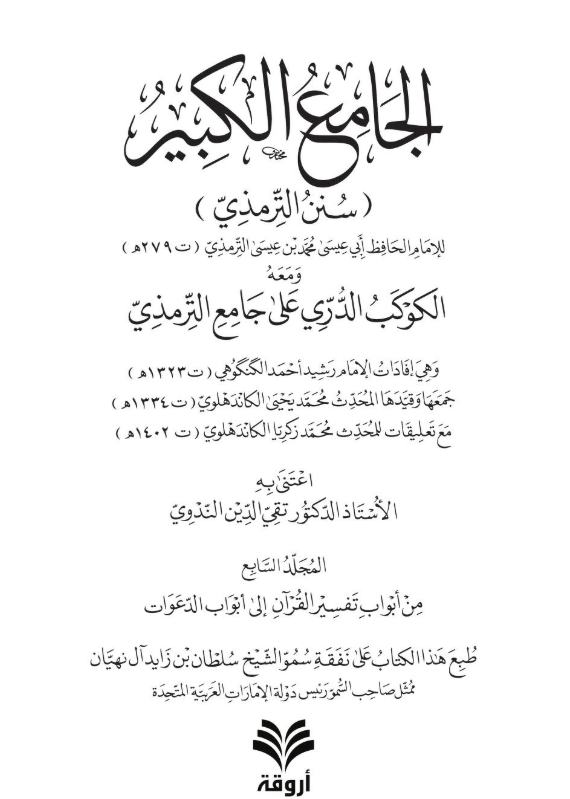 الجَامِعُ الكَبِيرُ
( سُنَنُ التِّرمذِيّ )
للإمَامِ الحَافِظ أَبي عِيسَىٰ مُحَمَّد بْن عِيسَىٰ التِّرمذِيّ ( ت ٢٧٩ه )
وَمَعَهُ
الكَوكَبُ الدُّرِّي عَلىٰ جَامِع التِّرمذِيّ
وَهِيَ إفَادَاتُ الإمَام رَشِيد أَحْمَد الكَنكَوُهي ( ت ١٣٢٣ه )
جَمَعَهَا وَقَيَّدَهَا المُحَدِّثُ مُحَمَّد يَحْيَىٰ الكانْدَهْلَويّ ( ت ١٣٣٤ه )
مَعَ تَعلِيقَات للمُحَدِّث مُحَمَّد زَكَرِيَّا الكانْدَهْلَويّ ( ت ١٤٠٢ه )
اعْتَنَىٰ بِهِ
الأُسْتَاذ الدّكتُور تَقِيّ الدِّيْن النَّدْوِيّ
المُجَلّدُ السَّابِع
مِنْ أَبْوَابِ تَفسِيْر القُرْآنِ إلىٰ أَبْوَاب الدّعَوَات
طُبِعَ هَذا الكتابُ عَلىٰ نَفَقَةِ سُمُوّ الشَّيْخ سُلطَان بْن زَايد آل نهيَّان
ممُثّل صَاحِب السُّموّ رَئيس دَوْلة الإمَارَات العَرَبيَّة المتّحِدَة
أروقة